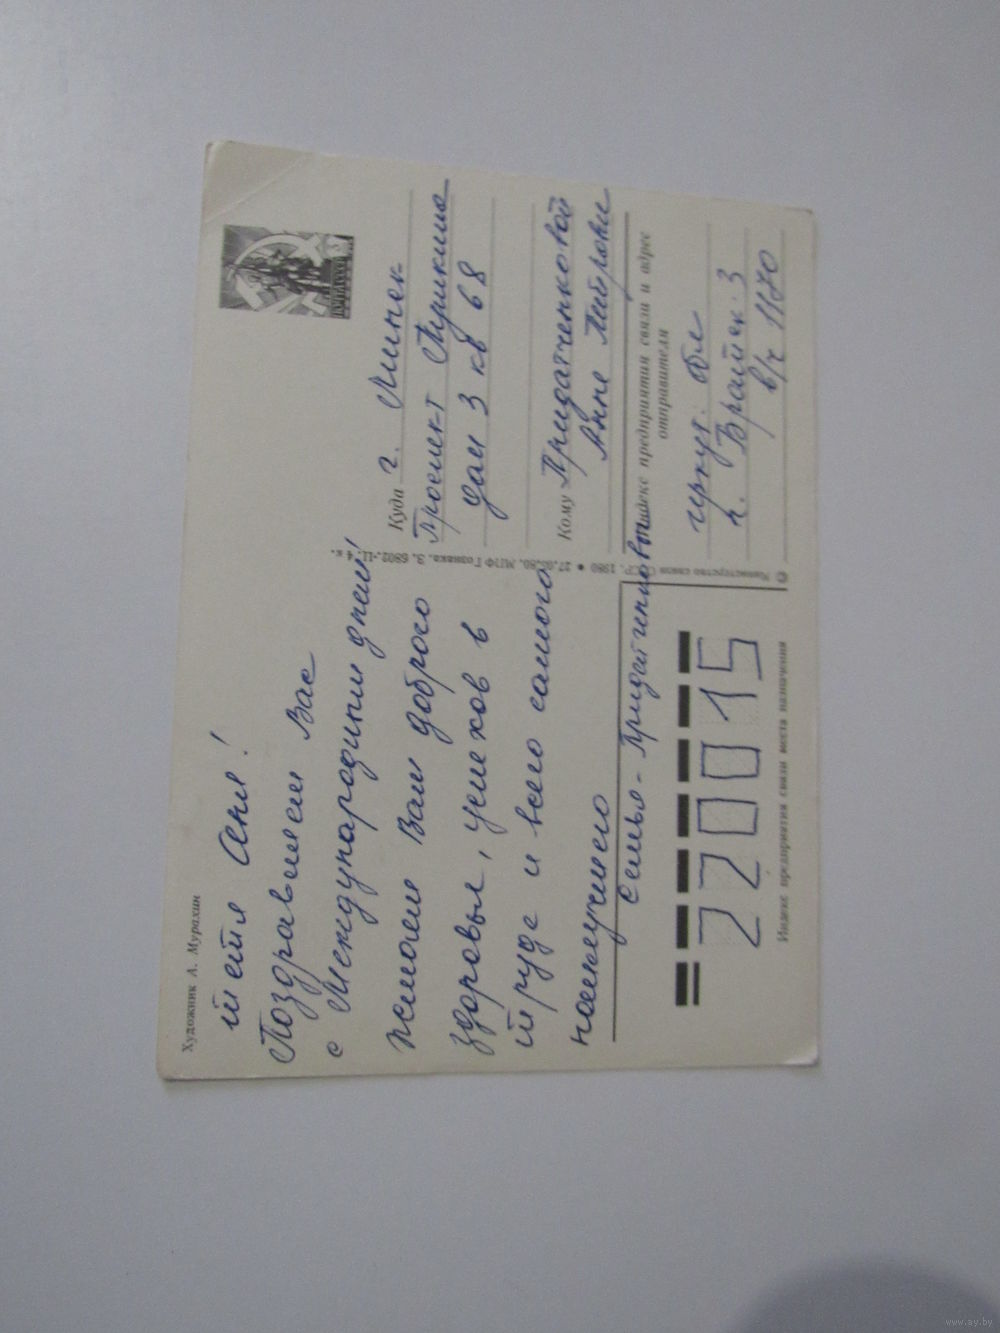 Художник А. Мурахин
тетя Аня!
Поздравляем Вас
с Международним днем
желаем Вам доброго
здоровья, успехов в
труде и всего самого
наилучшего
семья - Придатченковы
Куда г. Минск
Проспект Пушкина
дом 3 кв 68
Кому Придатченковой
Анне Петровне
Индекс предприятия связи и адрес
отправителя
обл
п. 3
в/ч 1170
220015
Индекс предприятия связи места назначения
© Министерство связи СССР. 1980 ● 27.05.80. МПФ Гознака. З. 6802.-II.-4 к.
www.ay.by